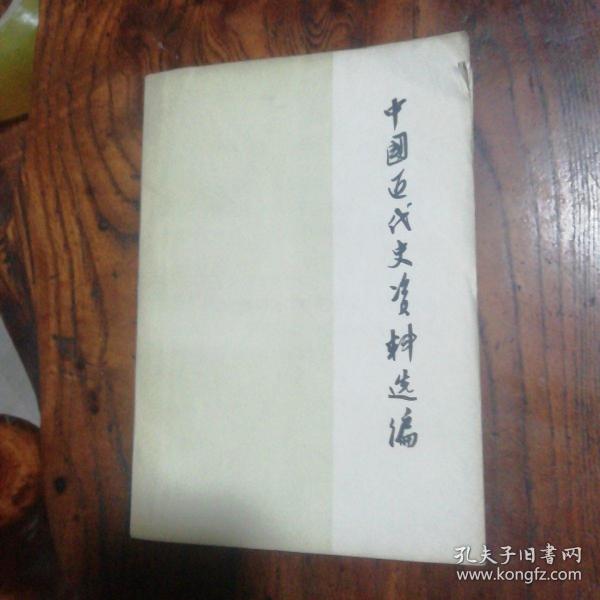 中國近代史资料选编
孔夫子旧書网
www.kongfz.com